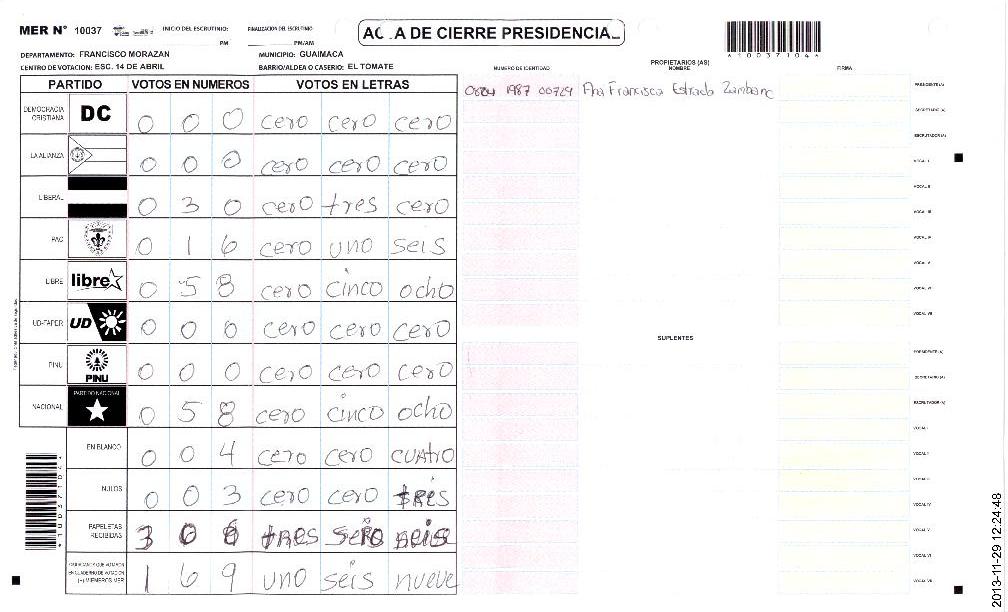 MER Nº 10037 INICIO DEL ESCRUTINIO: FINALIZACION DEL ESCRUTINIO
PM PM/AM
AC A DE CIERRE PRESIDENCIAL
*10037104*
DEPARTAMENTO: FRANCISCO MORAZAN MUNICIPIO: GUAIMACA
CENTRO DE VOTACION: ESC. 14 DE ABRIL BARRIO/ALDEA O CASERIO: EL TOMATE
NUMERO DE IDENTIDAD PROPIETARIOS (AS) NOMBRE FIRMA
PARTIDO VOTOS EN NUMEROS VOTOS EN LETRAS
1987 00729 Ana Francisca Estrada Zambrano PRESIDENTE (A)
DEMOCRACIA CRISTIANA DC 0 0 0 cero cero cero
SECRETARIO (A)
ESCRUTADOR (A)
LA ALIANZA 0 0 0 cero cero cero
VOCAL I
VOCAL II
LIBERAL 0 3 0 cero tres cero
VOCAL III
PAC 0 1 6 cero uno seis
VOCAL IV
VOCAL V
LIBRE libre 0 5 8 cero cinco ocho
VOCAL VI
VOCAL VII
UD-FAPER UD 0 0 0 cero cero cero
SUPLENTES
PINU PINU 0 0 0 cero cero cero
PRESIDENTE (A)
SECRETARIO (A)
NACIONAL PARTIDO NACIONAL 0 5 8 cero cinco ocho
ESCRUTADOR (A)
VOCAL I
EN BLANCO 0 0 4 cero cero cuatro
VOCAL II
VOCAL III
NULOS 0 0 3 cero cero tRES
VOCAL IV
PAPELETAS RECIBIDAS 3 0 tRES
VOCAL V
VOCAL VI
CIUDADANOS QUE VOTARON EN CUADERNO DE VOTACION (+) MIEMBROS MER 1 6 9 uno seis nueve
VOCAL VII
*10037104*
2013-11-29 12:24:48